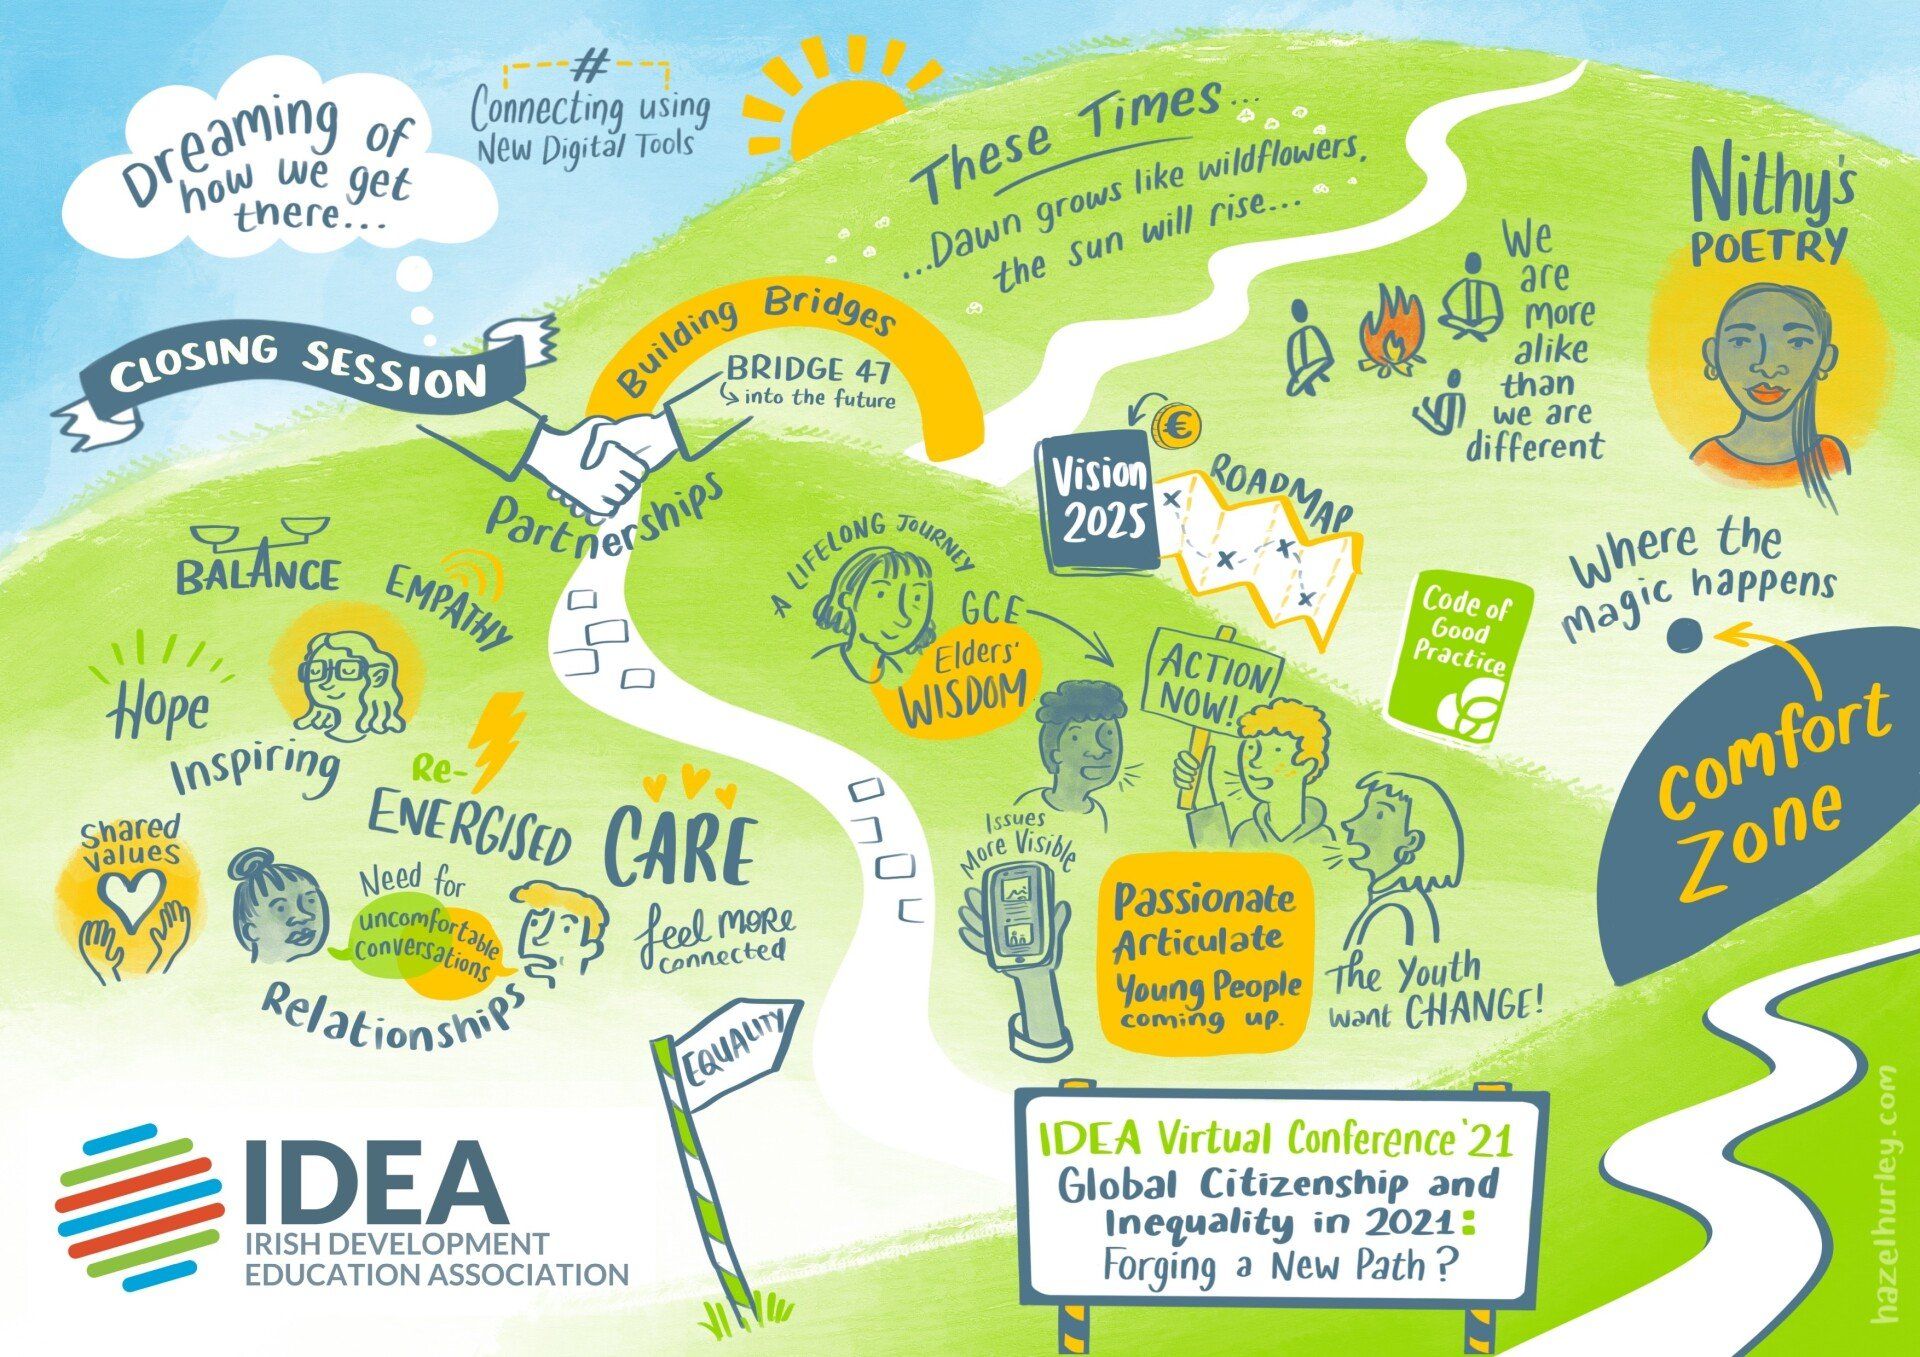 Dreaming of
how we get
there...
#
Connecting using
New Digital Tools
These Times...
...Dawn grows like wildflowers,
the sun will rise...
Nithy's
POETRY
We
are
more
alike
than
we are
different
CLOSING SESSION
Building Bridges
BRIDGE 47
into the future
Partnerships
€
Vision
2025
ROADMAP
BALANCE
EMPATHY
Hope
Inspiring
Re-
ENERGISED
CARE
feel MORE
connected
Shared
values
Need for
uncomfortable
conversations
Relationships
A LIFELONG JOURNEY
GCE
Elders'
WISDOM
ACTION
NOW!
Code of
Good
Practice
Where the
magic happens
Comfort
Zone
Issues
More Visible
Passionate
Articulate
Young People
coming up.
The Youth
want CHANGE!
EQUALITY
IDEA
IRISH DEVELOPMENT
EDUCATION ASSOCIATION
IDEA Virtual Conference '21
Global Citizenship and
Inequality in 2021:
Forging a New Path?
hazelhurley.com